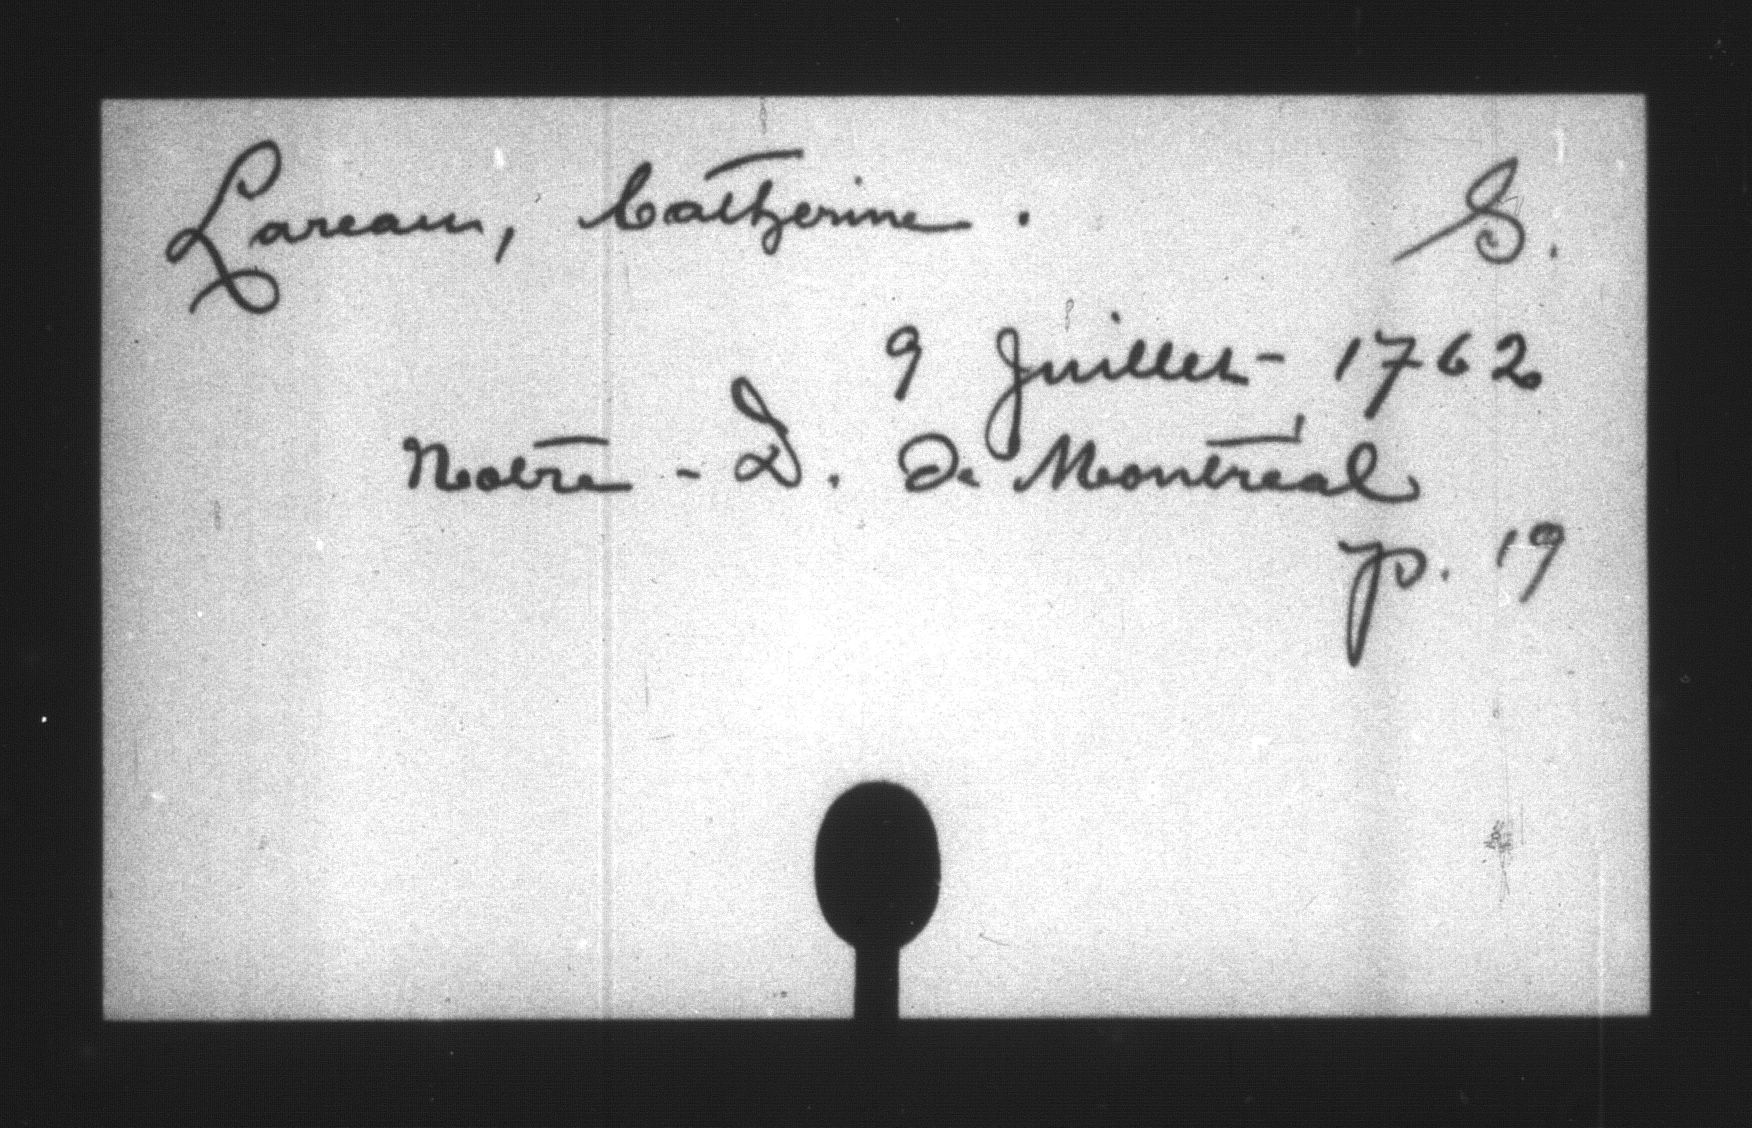 Lareau, Catherine. S.
9 Juillet - 1762
Notre - D. de Montréal
p. 19